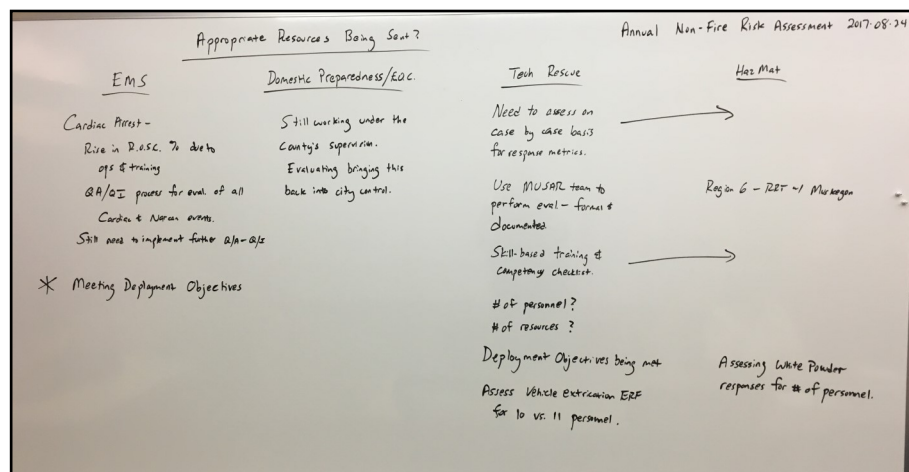 Annual Non-Fire Risk Assessment 2017.08.24
Appropriate Resources Being Sent?
EMS
Cardiac Arrest -
Rise in R.O.S.C. % due to
ops & training
QA/QI process for eval. of all
Cardiac & Narcan events.
Still need to implement further Q/A-Q/I
* Meeting Deployment Objectives
Domestic Preparedness/E.O.C.
Still working under the
County's supervision.
Evaluating bringing this
back into city control.
Tech Rescue
Need to assess on
case by case basis
for response metrics.
Use MUSAR team to
perform eval - formal &
documented.
Skill-based training &
competency checklist.
# of personnel?
# of resources?
Deployment Objectives being met
Assess Vehicle extrication ERF
for 10 vs. 11 personnel.
Haz Mat
Region 6 - RRT - / Muskegon
Assessing White Powder
responses for # of personnel.